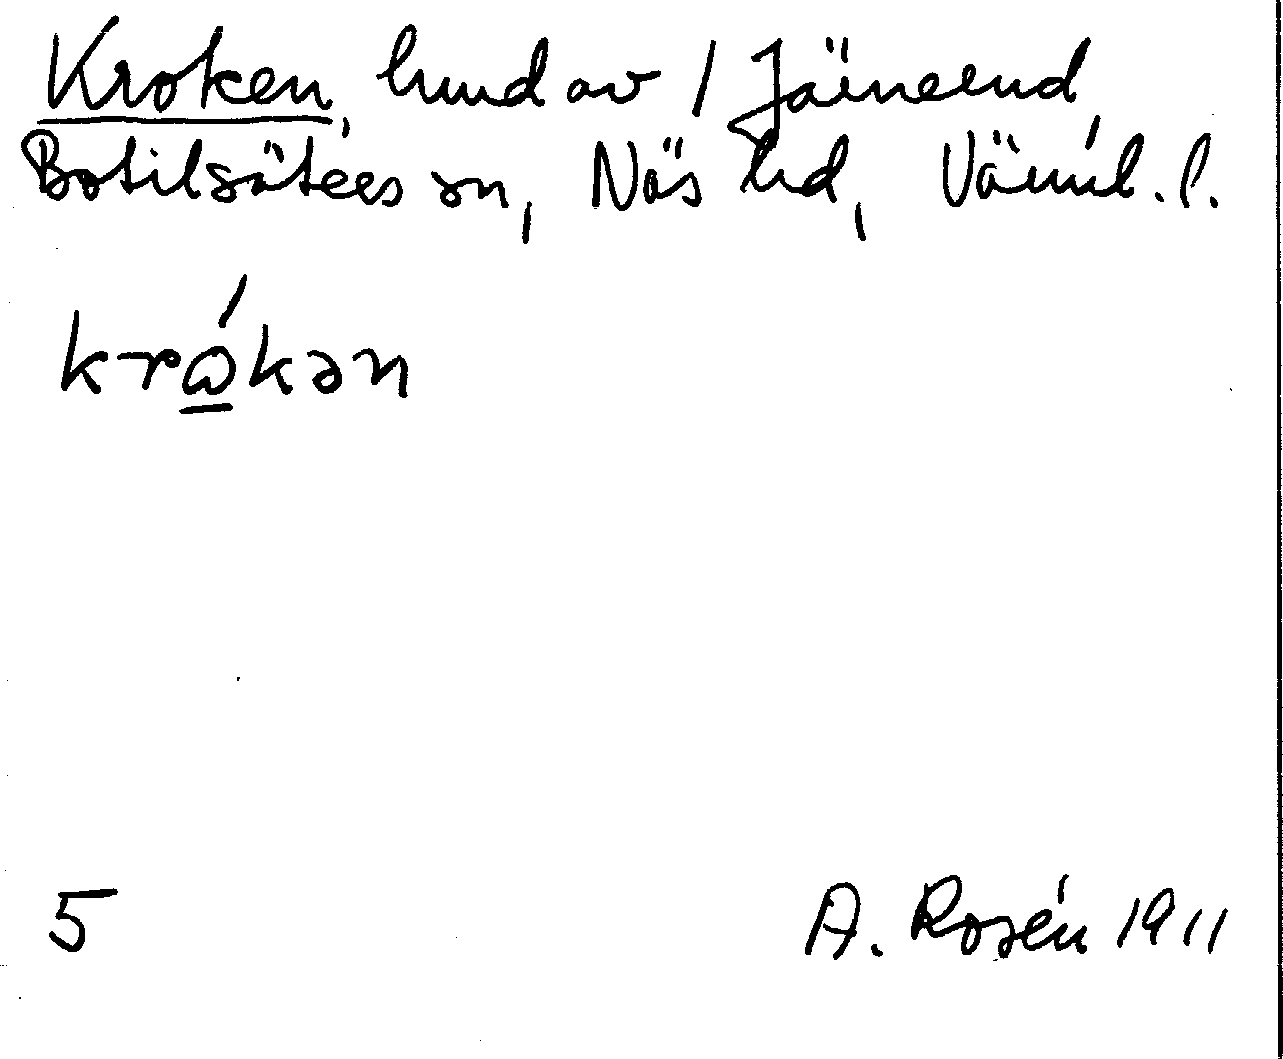 Kroken, hmd av 1 Järnerud
Botilsäters sn, Näs hd, Värml. l.
krɷ́kən
5 A. Rosén 1911